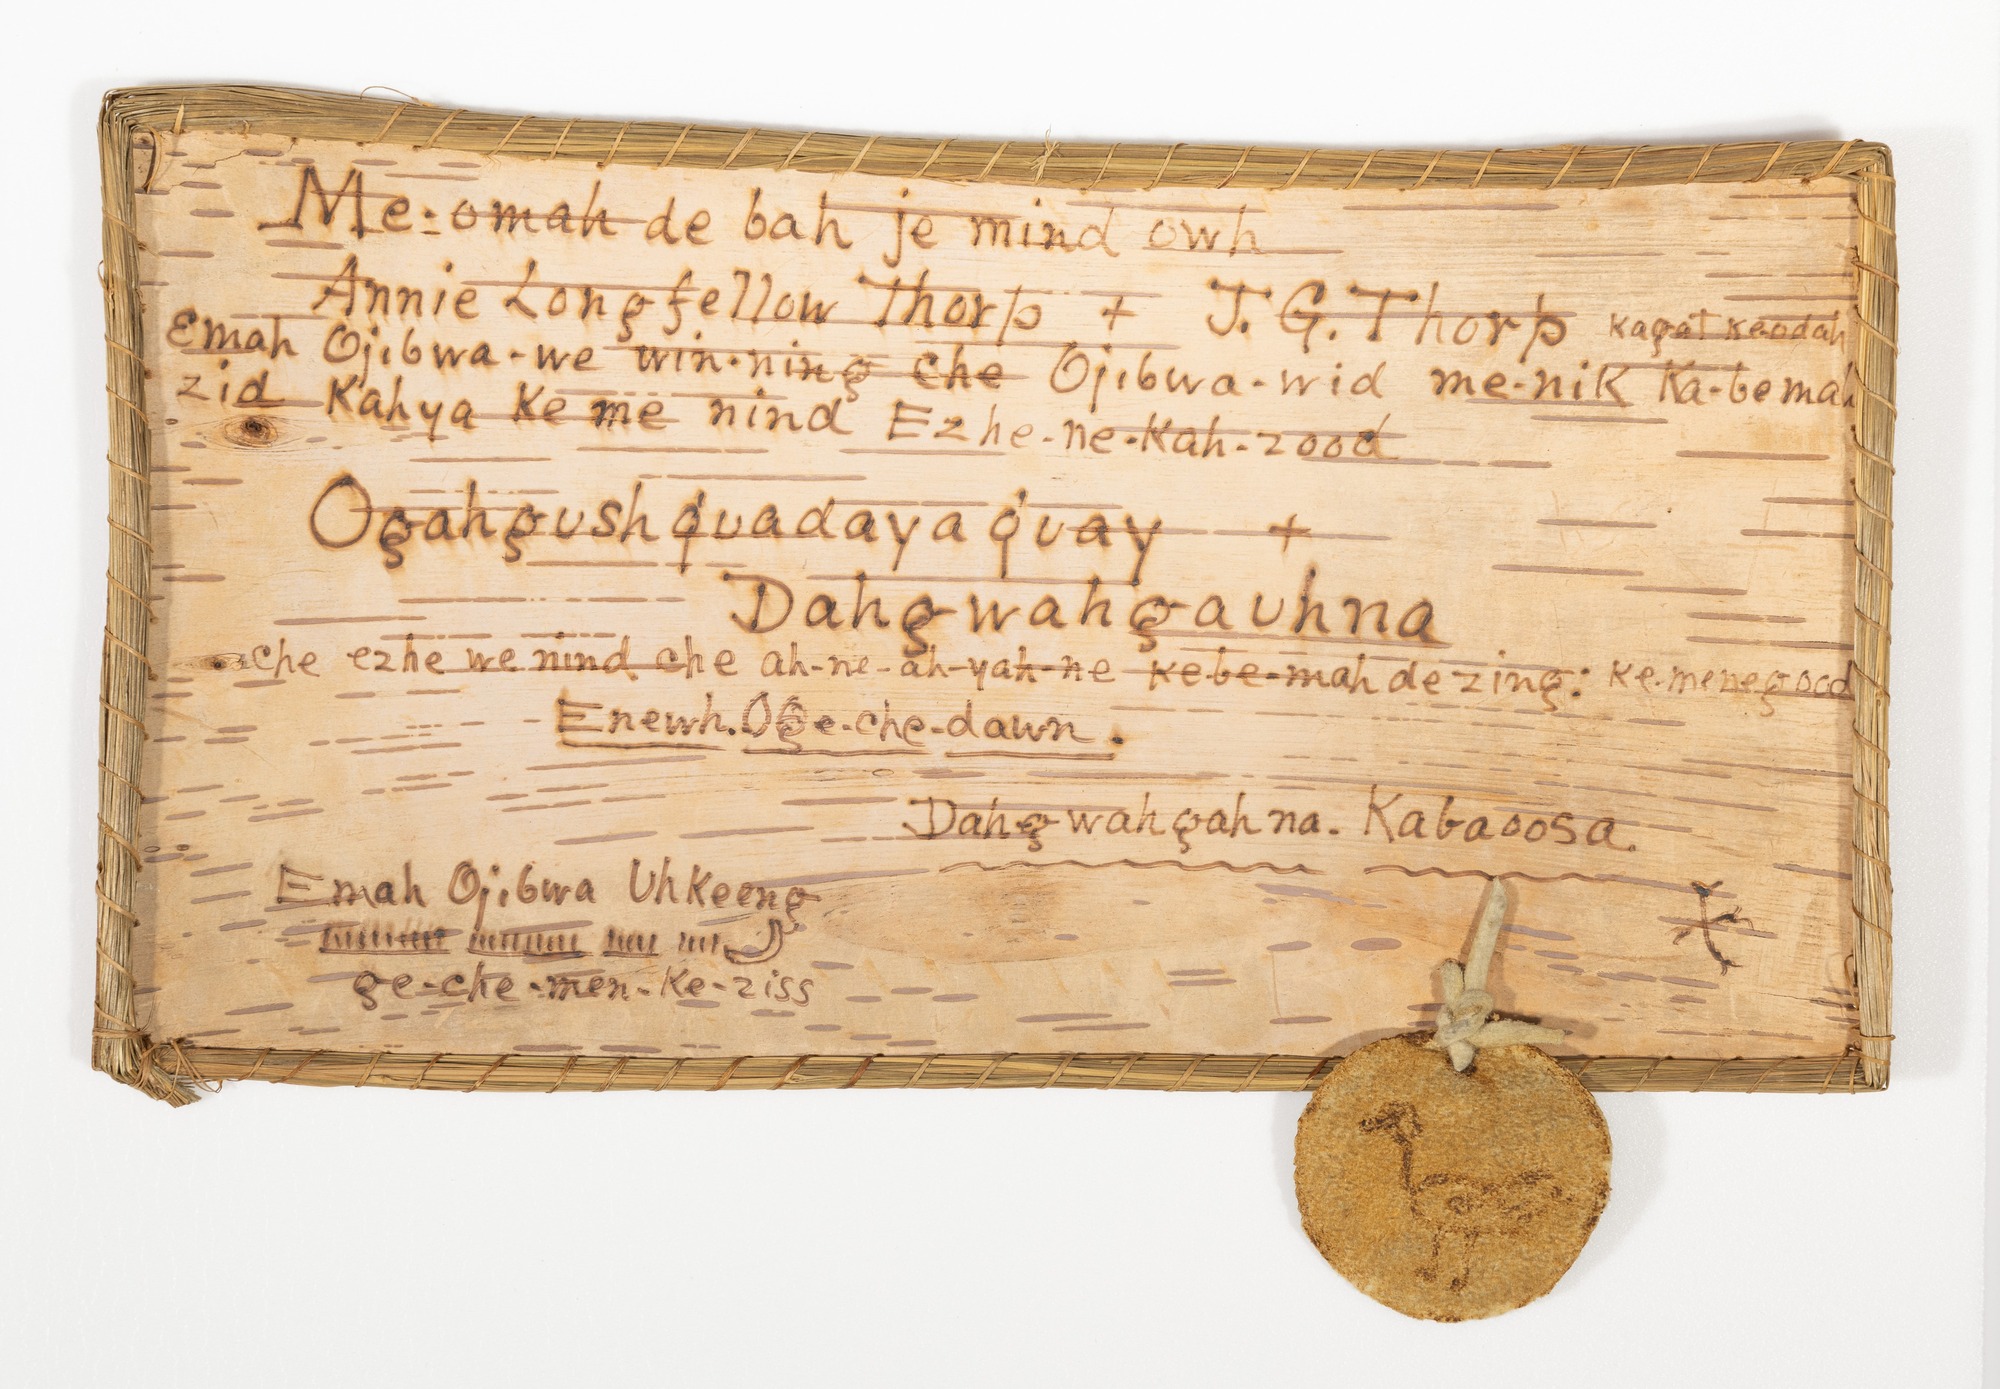 Me-omah de bah je mind owh
Annie Longfellow Thorp + J. G. Thorp kagat keodah
Emah Ojibwa-we win-ning che Ojibwa-wid me-nik Ka-bemah
zid Kahya Ke me nind Ezhe-ne-Kah-zood
Ogahgushquadayaquay +
Dahgwahgauhna
che ezhe we nind che ah-ne-ah-yah-ne kebe-mah de zing: Ke-menegood
Enewh. Oge-che-dawn.
Dahgwahgahna. Kabaoosa.
Emah Ojibwa Uhkeeng
ge-che-men-Ke-ziss